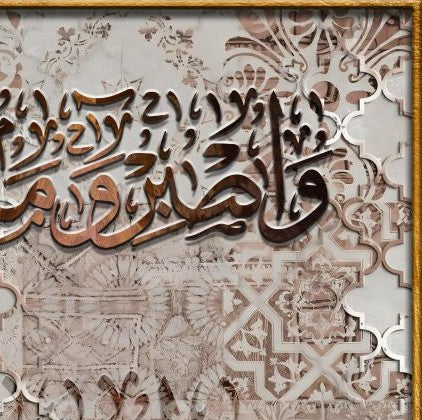 وَاصْبِرْ وَمَ